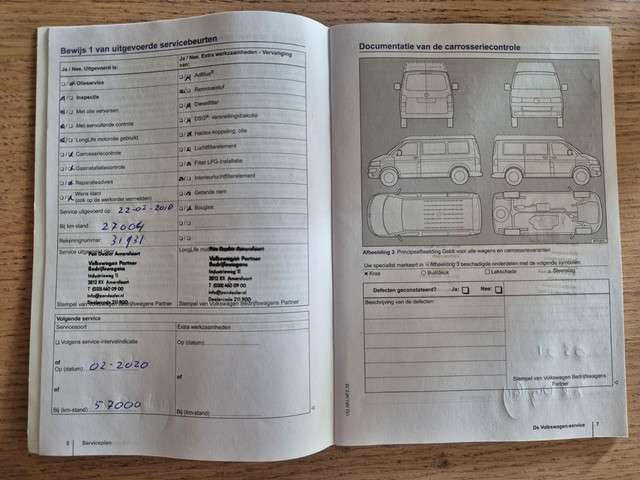 Bewijs 1 van uitgevoerde servicebeurten
Ja / Nee. Uitgevoerd is:
Ja / Nee. Extra werkzaamheden - Vervanging van:
Olieservice
Inspectie
Met olie verversen
Met aanvullende controle
LongLife motorolie gebruikt
Carrosseriecontrole
Gasinstallatiecontrole
Reparatieadvies
Wens klant
(ook op de werkorder vermelden)
AdBlue®
Remvloeistof
Dieselfilter
DSG®-versnellingsbakolie
Haldex-koppeling: olie
Luchtfilterelement
Filter LPG-installatie
Interieurluchtfilterelement
Getande riem
Bougies
Service uitgevoerd op: 22-02-2018
Bij km-stand: 27004
Rekeningnummer: 31931
Service uitgevoerd
Pon Dealer Amersfoort
Volkswagen Partner
Bedrijfswagens
Industrieweg 11
3812 RX Amersfoort
T (033) 460 09 00
info@pondealer.nl
Dealercode 211.900
Stempel van Volkswagen Bedrijfswagens Partner
LongLife mo
Pon Dealer Amersfoort
Volkswagen Partner
Bedrijfswagens
Industrieweg 11
3812 RX Amersfoort
T (033) 460 09 00
info@pondealer.nl
Dealercode 211.900
Stempel van Volkswagen Bedrijfswagens Partner
Volgende service
Servicesoort
Extra werkzaamheden
Volgens service-intervalindicatie
of
Op (datum): 02-2020
of
Bij (km-stand): 57000
Op (datum):
of
Bij (km-stand):
6 Serviceplan
Documentatie van de carrosseriecontrole
Afbeelding 3 Principeafbeelding: Geldt voor alle wagens en carrosserievarianten.
Uw specialist markeert in Afbeelding 3 beschadigde onderdelen met de volgende symbolen:
× Kras
O Buil/deuk
Lakschade
Steenslag
Defecten geconstateerd? Ja: Nee:
Beschrijving van de defecten:
Stempel van Volkswagen Bedrijfswagens
Partner
De Volkswagen-service 7